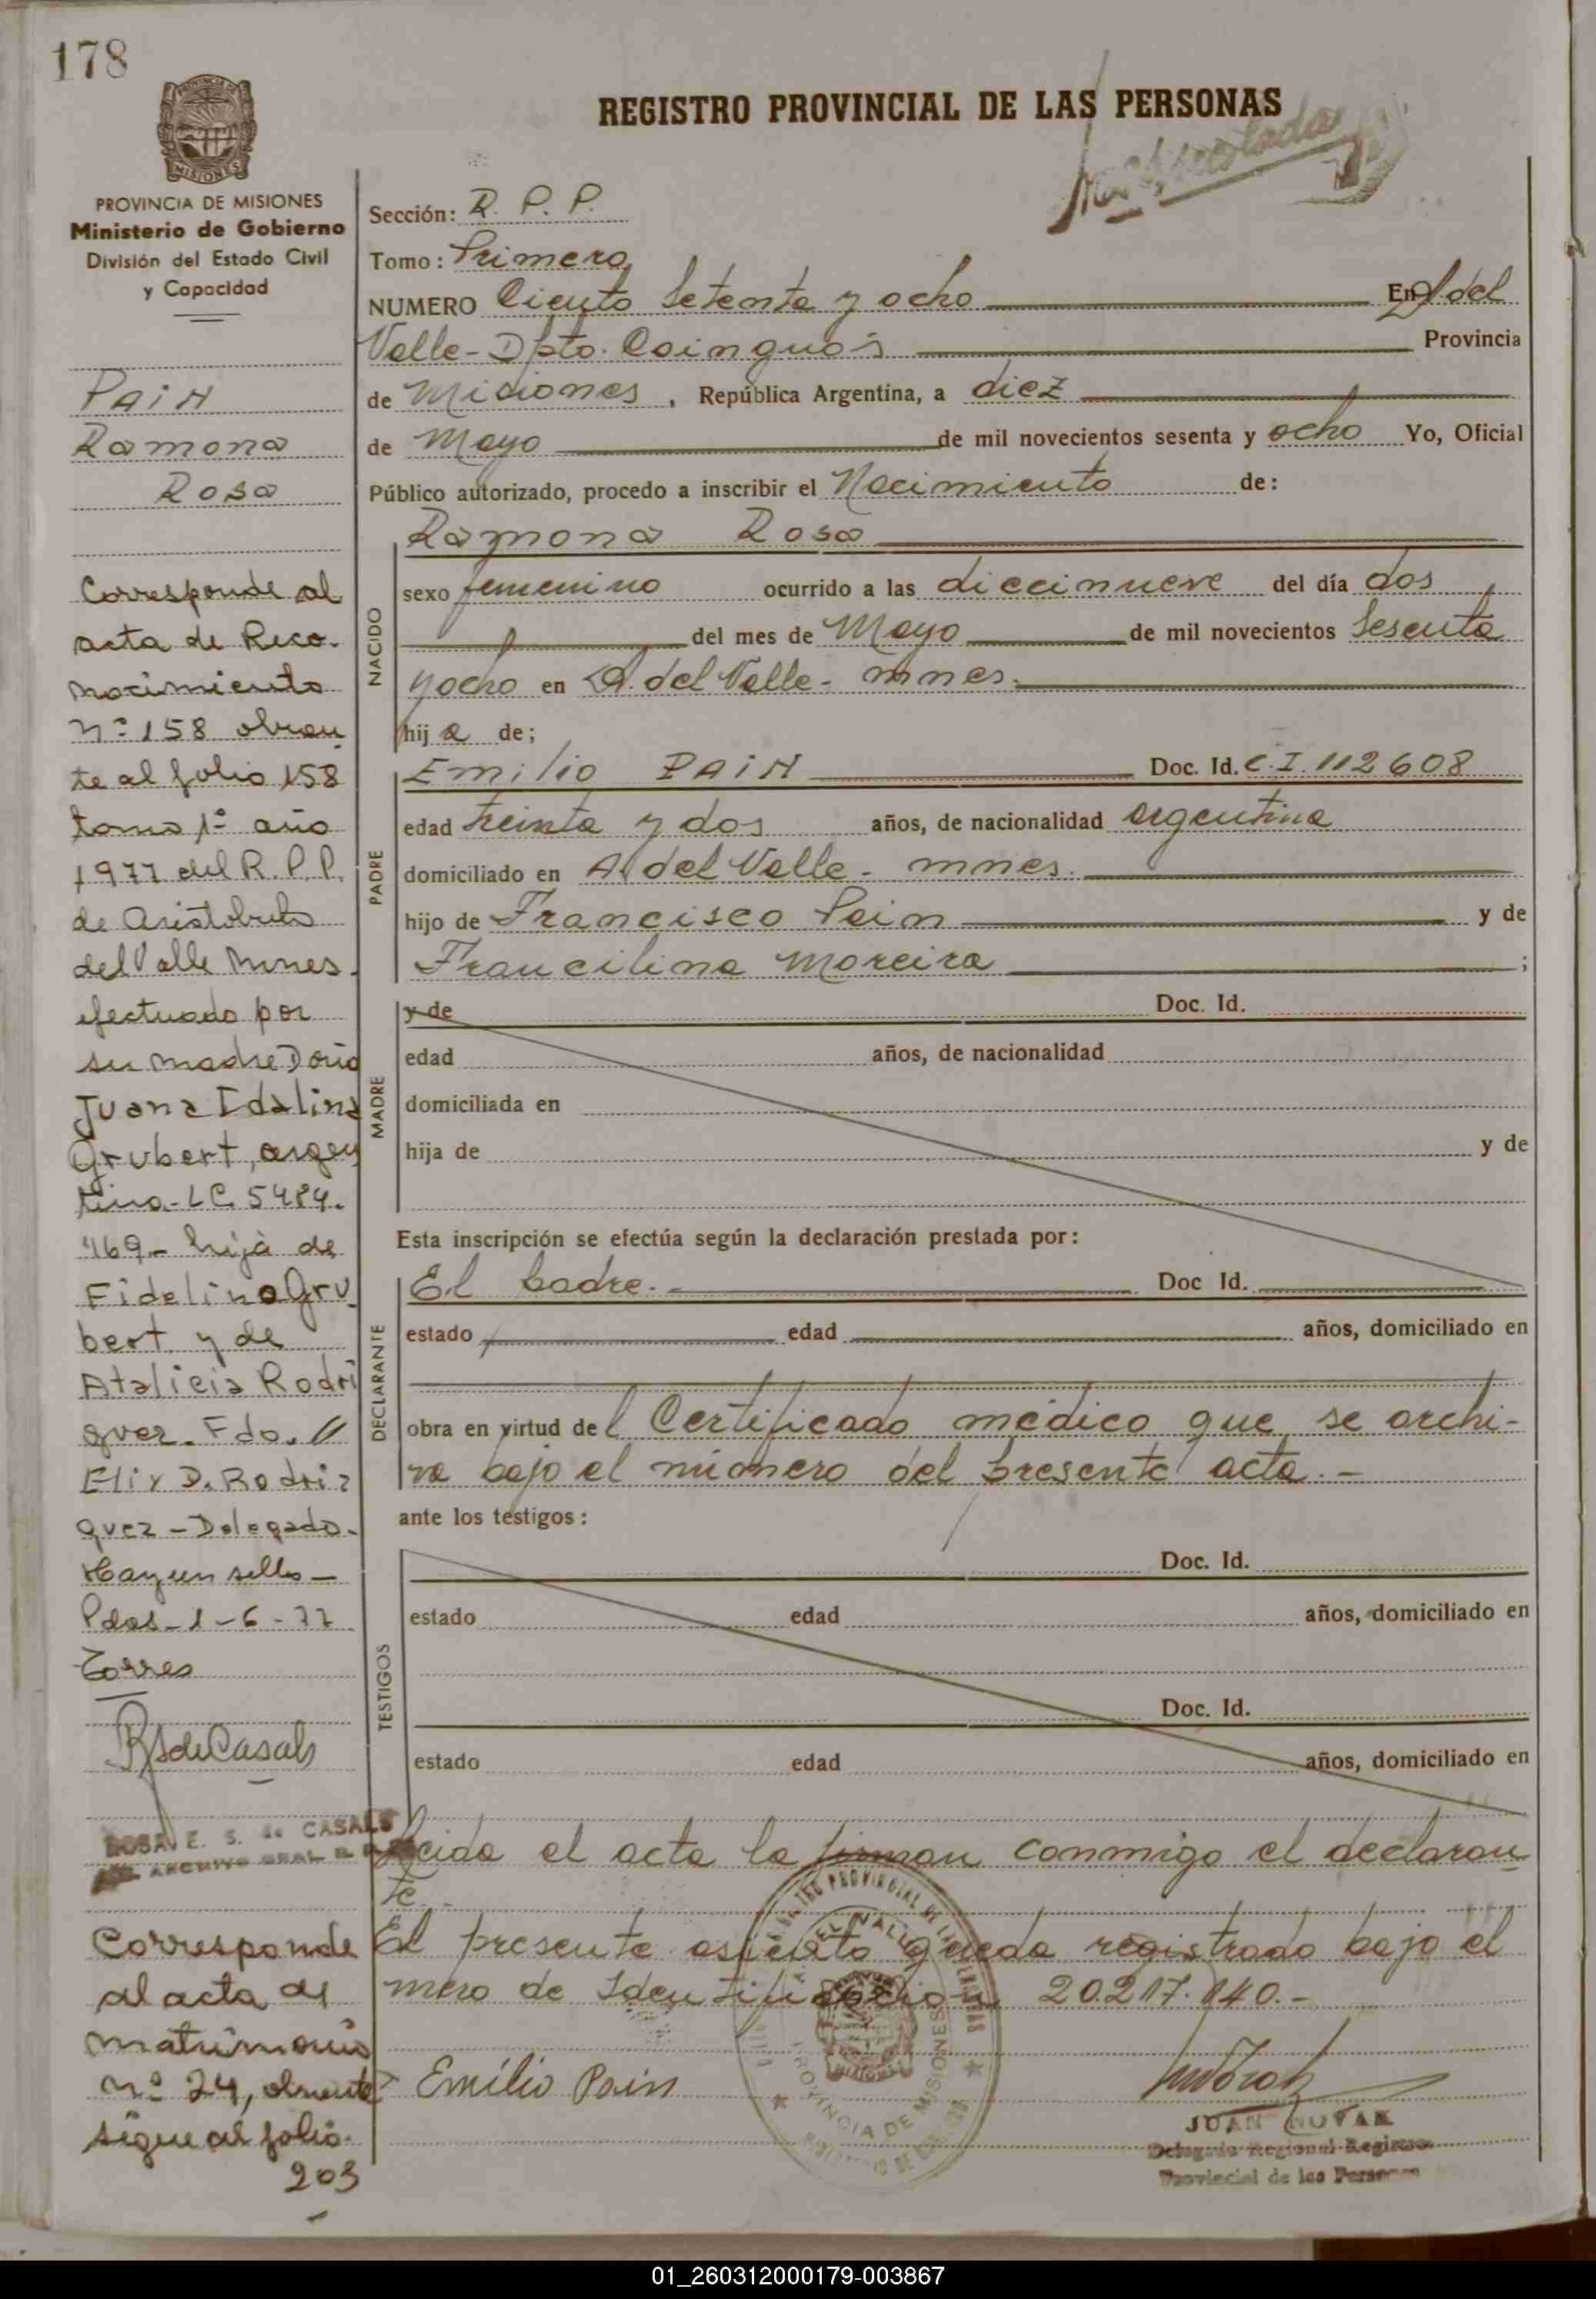 178
PROVINCIA DE
MISIONES
REGISTRO PROVINCIAL DE LAS PERSONAS
PROVINCIA DE MISIONES
Ministerio de Gobierno
División del Estado Civil
y Capacidad
PAIN
Ramona
Rosa
Corresponde al
acta de Reco-
nocimiento
Nº 158 obran
te al folio 158
tomo 1º año
1977 del R.P.P.
de Aristobulo
del Valle Mnes.
efectuado por
su madre Doña
Juana Idalina
Grubert, argen
tina - LC. 5484.
469 - hija de
Fidelino Gru
bert y de
Atalicia Rodri
guez. Fdo.
Elix D. Rodri
guez - Delegado.
Hay un sello -
Pdas - 1 - 6 - 77
Torres
RSdeCasals
ROSA E. S. de CASALS
ARCHIVO GRAL
Corresponde
al acta de
matrimonio
Nº 24, obrante
sigue al folio
203
Sección: R. P. P.
Tomo: Primero
NUMERO Ciento Setenta y ocho En A del
Valle - Dpto. Cainguás Provincia
de Misiones, República Argentina, a diez
de Mayo de mil novecientos sesenta y ocho Yo, Oficial
Público autorizado, procedo a inscribir el Nacimiento de:
NACIDO
Ramona Rosa
sexo femenino ocurrido a las diecinueve del día dos
del mes de Mayo de mil novecientos Sesenta
y ocho en A. del Valle - mnes.
hija de;
PADRE
Emilio PAIN Doc. Id. C.I. 112608
edad treinta y dos años, de nacionalidad argentina
domiciliado en A. del Valle - mnes.
hijo de Francisco Pain y de
Francilina Moreira ;
MADRE
y de Doc. Id.
edad años, de nacionalidad
domiciliada en
hija de y de
Esta inscripción se efectúa según la declaración prestada por:
DECLARANTE
El padre. - Doc Id.
estado edad años, domiciliado en
obra en virtud del Certificado médico que se archi-
va bajo el número del presente acta. -
ante los testigos:
TESTIGOS
Doc. Id.
estado edad años, domiciliado en
Doc. Id.
estado edad años, domiciliado en
Leida el acta la firman conmigo el declaran
te.
El presente asiento queda registrado bajo el
mero de Identificación 20.217.140. -
Emilio Pain
PROVINCIA DE MISIONES
JUAN NOVAK
Delegado Regional Registro
Provincial de las Personas
01_260312000179-003867